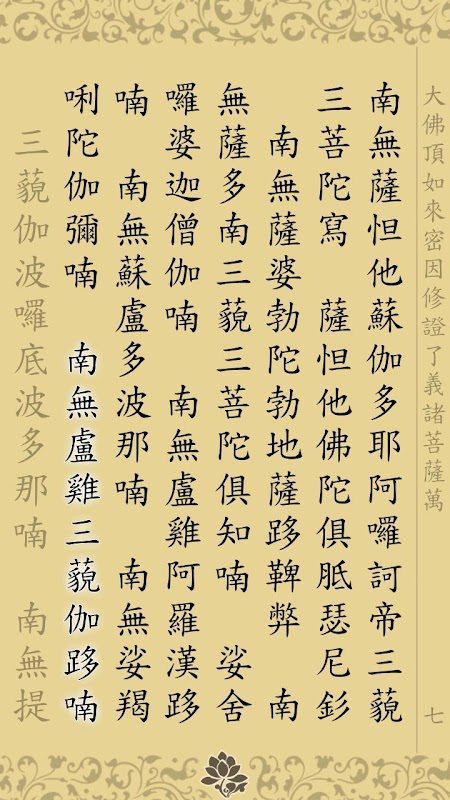 大佛頂如來密因修證了義諸菩薩萬
七
南無薩怛他蘇伽多耶阿囉訶帝三藐
三菩陀寫　薩怛他佛陀俱胝瑟尼釤
南無薩婆勃陀勃地薩跢鞞弊　南
無薩多南三藐三菩陀俱知喃　娑舍
囉婆迦僧伽喃　南無盧雞阿羅漢跢
喃　南無蘇盧多波那喃　南無娑羯
唎陀伽彌喃　南無盧雞三藐伽跢喃
三藐伽波囉底波多那喃　南無提